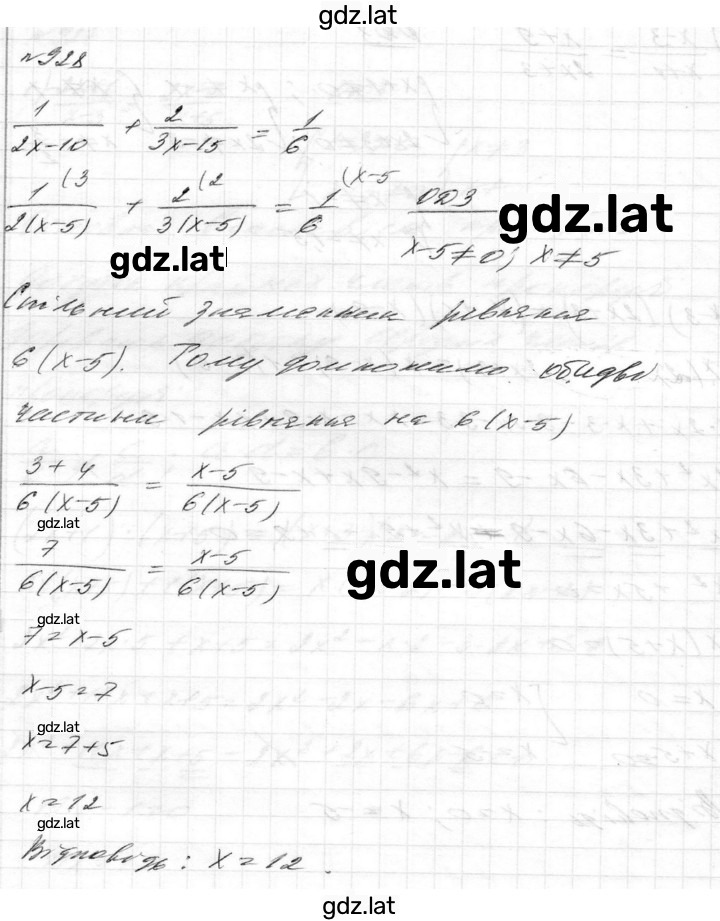 gdz.lat
№928
1/(2x-10) + 2/(3x-15) = 1/6
1(3/(2(x-5)) + 2(2/(3(x-5)) = 1(x-5/6 ОДЗ
gdz.lat
x-5≠0; x≠5
gdz.lat
Спільний знаменник рівняння
6(x-5). Тому домножимо обидві
частини рівняння на 6(x-5)
(3+4)/(6(x-5)) = (x-5)/(6(x-5))
gdz.lat
7/(6(x-5)) = (x-5)/(6(x-5))
gdz.lat
gdz.lat
7=x-5
x-5=7
gdz.lat
x=7+5
x=12
gdz.lat
Відповідь: x=12.
gdz.lat